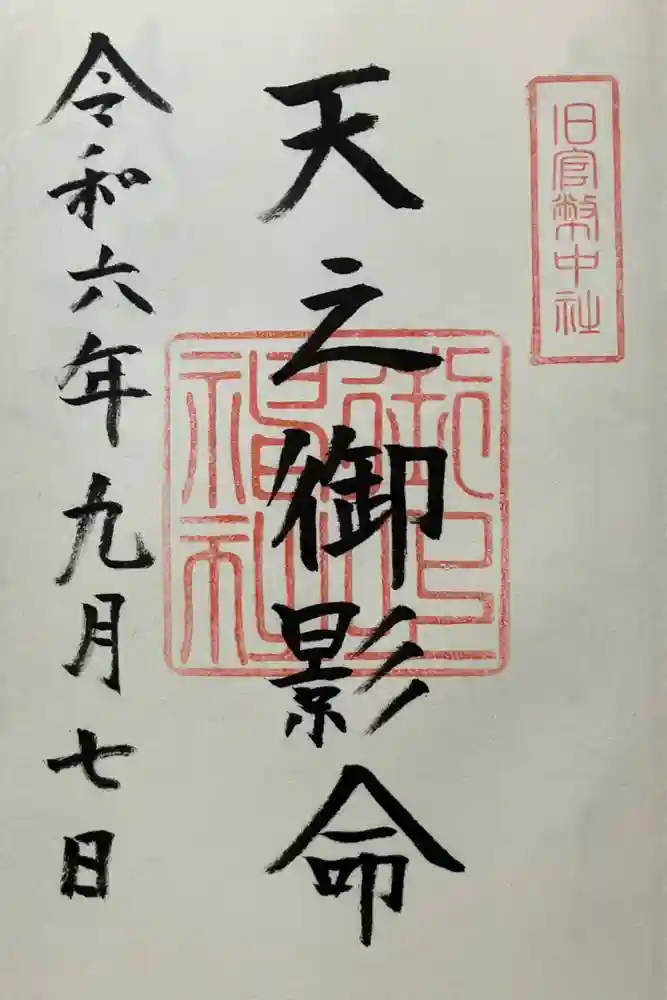 旧官幣中社
天之御影命
御上神社
令和六年九月七日